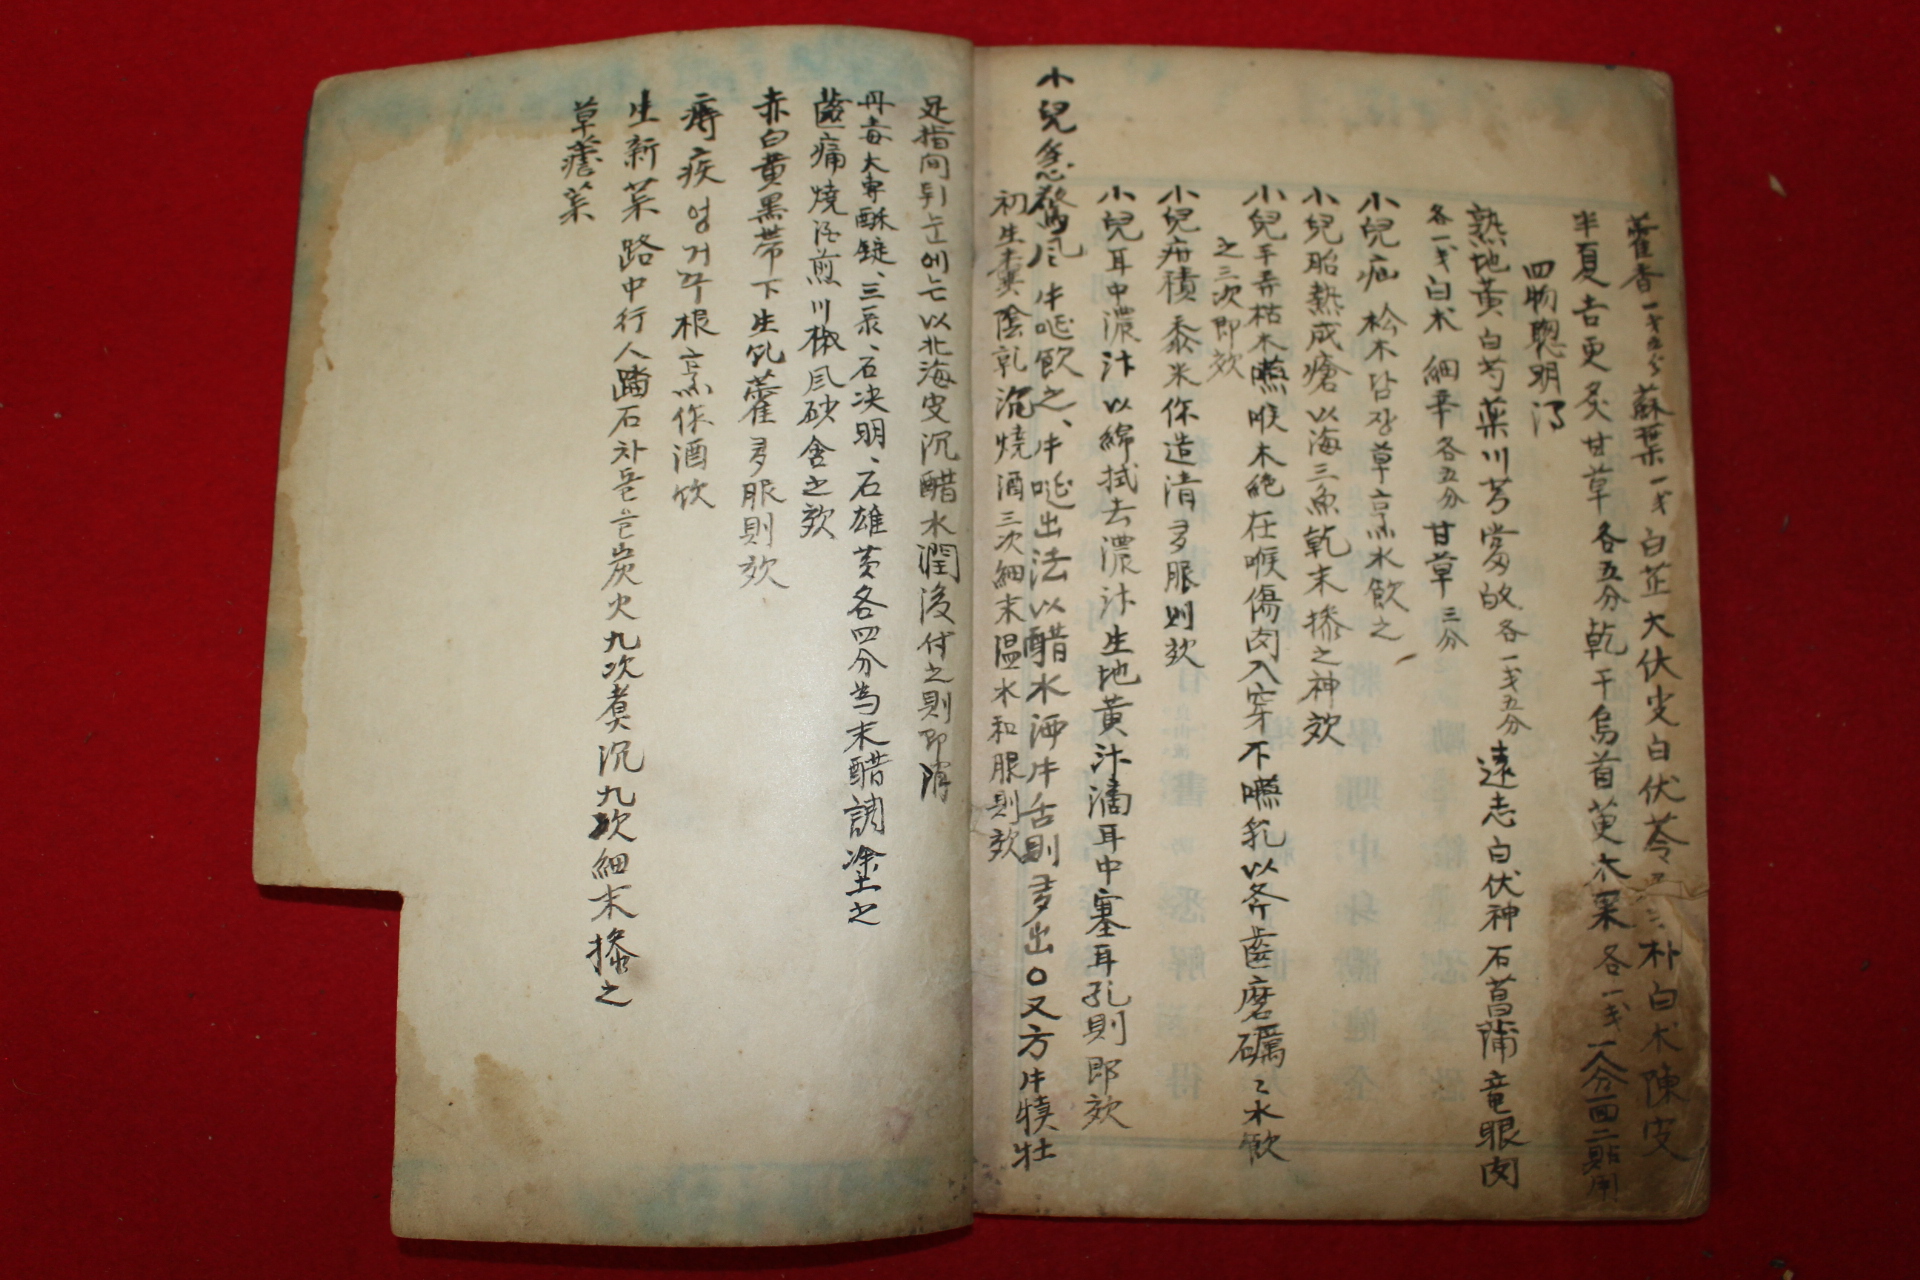 藿香一戔五分 蘇葉一戔 白芷大伏皮白伏苓 朴白朮陳皮
半夏吉更炙甘草各五分乾干烏首 各一戔
四物聰明
熟地黃白芍藥川芎當 各一戔五分 遠志白伏神石菖蒲竜眼肉
各一戔白朮 細辛各五分 甘草三分
小兒疝 松木담장草烹水飮之
小兒胎熱成瘡以海三魚乾末摻之神效
小兒手弄枯木嚥喉木 在喉傷肉入穿不嚥乳以 齒磨礪々水飮
之三次即效
小兒疳積黍米作造淸多服則效
小兒耳中濃汁以綿拭去濃汁生地黃汁滴耳中塞耳孔則即效
小兒急驚风牛唌飮之、牛唌出法以醋水 牛舌則多出○又方牛犢牡
初生糞陰乾沉燒酒三次細末溫水和服則效
足指间튀눈에는以北海皮沉醋水潤後付之則即消
丹毒大專酥錠、三 、石决明、石雄黃各四分為末醋調塗之
齒痛燒酒煎川椒风砂含之效
赤白黃黑帶下生乳藿多服則效
痔疾엉거쿠根烹作酒飮
生新菜路中行人踏石차돌을炭火九次煮沉九次細末摻之
草 菜